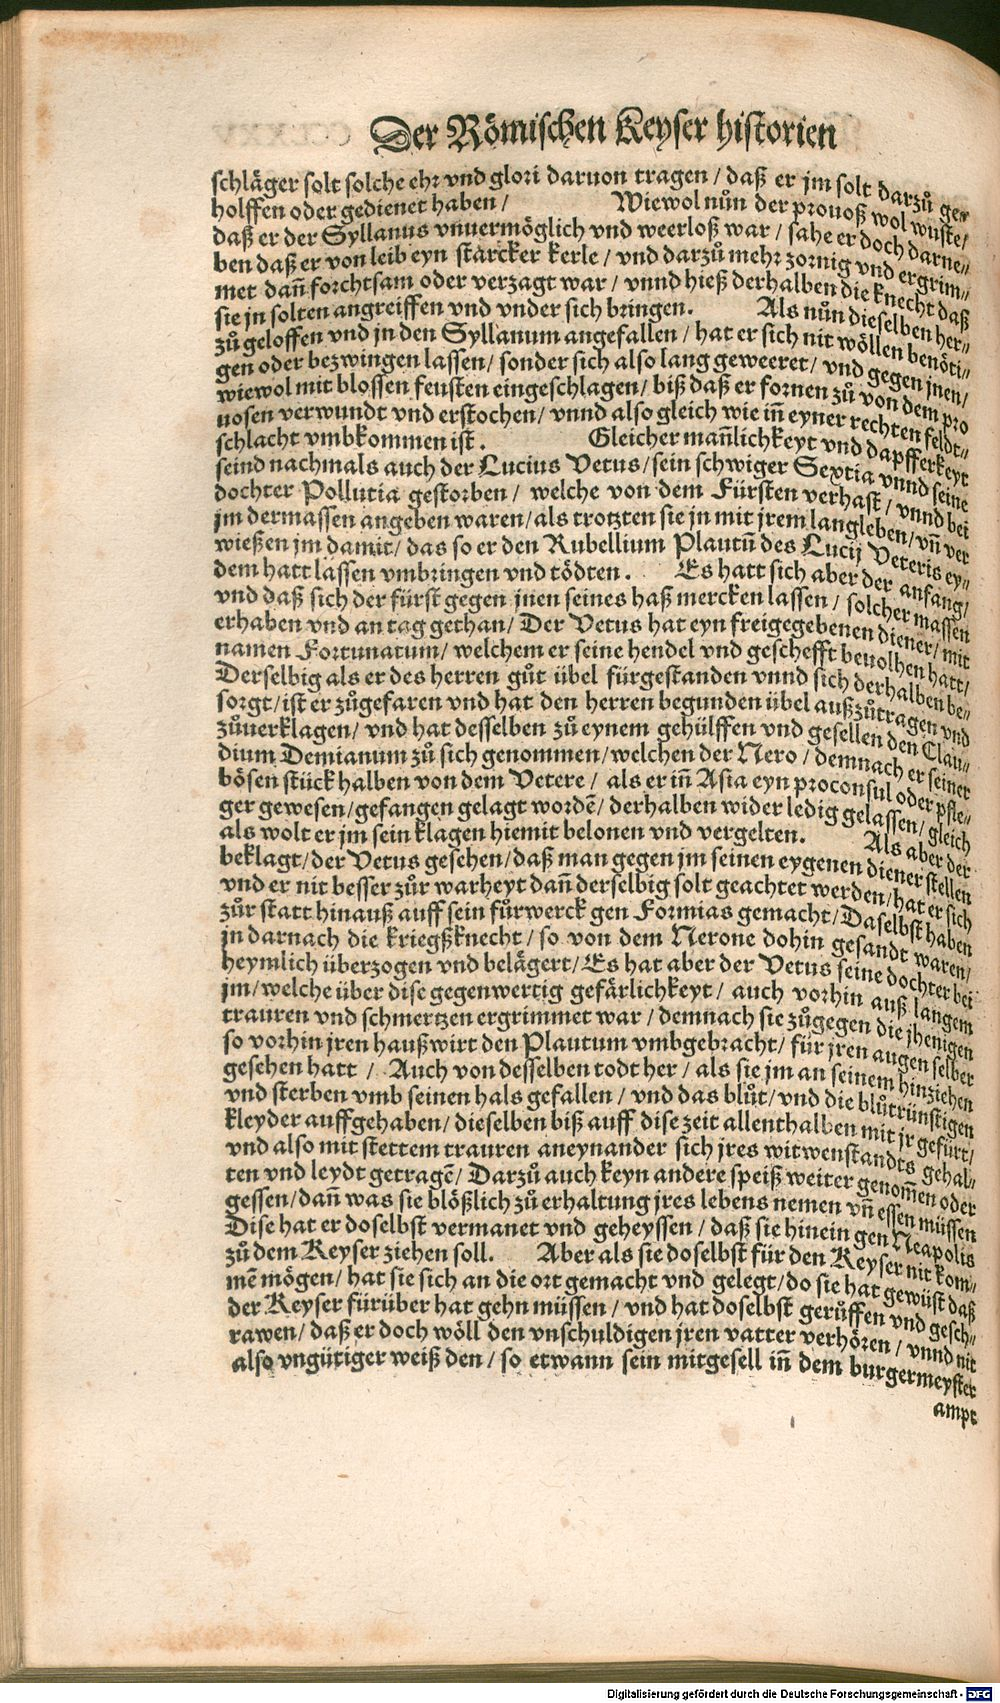 Der Römischen Keyser historien
schläger solt solche ehr vnd glori daruon tragen / daß er jm solt darzů ge⸗
holffen oder gedienet haben / Wiewol nůn der prouoß wol wuste /
daß er der Syllanus vnuermöglich vnd weerloß war / sahe er doch darne⸗
ben daß er von leib eyn starcker kerle / vnd darzů mehr zornig vnd ergrim⸗
met dañ forchtsam oder verzagt war / vnnd hieß derhalben die knecht daß
sie jn solten angreiffen vnd vnder sich bringen. Als nůn dieselben her⸗
zů geloffen vnd jn den Syllanum angefallen / hat er sich nit wöllen benöti⸗
gen oder bezwingen lassen / sonder sich also lang geweeret / vnd gegen jnen /
wiewol mit blossen feusten eingeschlagen / biß daß er fornen zů von dem pro
uosen verwundt vnd erstochen / vnnd also gleich wie iñ eyner rechten feldt⸗
schlacht vmbkommen ist. Gleicher mañlichkeyt vnd dapfferkeyt
seind nachmals auch der Lucius Vetus / sein schwiger Sextia vnnd seine
dochter Pollutia gestorben / welche von dem Fürsten verhast / vnnd bei
jm dermassen angeben waren / als trotzten sie jn mit jrem langleben / vñ ver
wießen jm damit / das so er den Rubellium Plautũ des Lucij Veteris ey⸗
dem hatt lassen vmbringen vnd tödten. Es hatt sich aber der anfang /
vnd daß sich der fürst gegen jnen seines haß mercken lassen / solcher massen
erhaben vnd an tag gethan / Der Vetus hat eyn freigegebenen diener / mit
namen Fortunatum / welchem er seine hendel vnd geschefft beuolhen hatt /
Derselbig als er des herren gůt übel fürgestanden vnnd sich derhalben be⸗
sorgt / ist er zůgefaren vnd hat den herren begunden übel außzůtragen vnd
zůuerklagen / vnd hat desselben zů eynem gehülffen vnd gesellen den Clau⸗
dium Demianum zů sich genommen / welchen der Nero / demnach er seiner
bösen stück halben von dem Vetere / als er iñ Asia eyn proconsul oder pfle⸗
ger gewesen / gefangen gelagt wordẽ / derhalben wider ledig gelassen / gleich
als wolt er jm sein klagen hiemit belonen vnd vergelten. Als aber der
beklagt / der Vetus gesehen / daß man gegen jm seinen eygenen diener stellen
vnd er nit besser zůr warheyt dañ derselbig solt geachtet werden / hat er sich
zůr statt hinauß auff sein fůrwerck gen Formias gemacht / Daselbst haben
jn darnach die kriegßknecht / so von dem Nerone dohin gesandt waren /
heymlich überzogen vnd belägert / Es hat aber der Vetus seine dochter bei
jm / welche über dise gegenwertig gefärlichkeyt / auch vorhin auß langem
trauren vnd schmertzen ergrimmet war / demnach sie zůgegen die jhenigen
so vorhin jren haußwirt den Plautum vmbgebracht / für jren augen selber
gesehen hatt / Auch von desselben todt her / als sie jm an seinem hinziehen
vnd sterben vmb seinen hals gefallen / vnd das blůt / vnd die blůtrünstigen
kleyder auffgehaben / dieselben biß auff dise zeit allenthalben mit jr gefürt /
vnd also mit stettem trauren aneynander sich jres witwenstandts gehal⸗
ten vnd leydt getragẽ / Darzů auch keyn andere speiß weiter genom̃en oder
gessen / dañ was sie blößlich zů erhaltung jres lebens nemen vñ essen müssen
Dise hat er doselbst vermanet vnd geheyssen / daß sie hinein gen Neapolis
zů dem Keyser ziehen soll. Aber als sie doselbst für den Keyser nit kom⸗
mẽ mögen / hat sie sich an die ort gemacht vnd gelegt / do sie hat gewüst daß
der Keyser fürüber hat gehn müssen / vnd hat doselbst gerůffen vnd gesch⸗
rawen / daß er doch wöll den vnschuldigen jren vatter verhören / vnnd nit
also vngütiger weiß den / so etwann sein mitgesell iñ dem burgermeyster
ampt
Digitalisierung gefördert durch die Deutsche Forschungsgemeinschaft - DFG